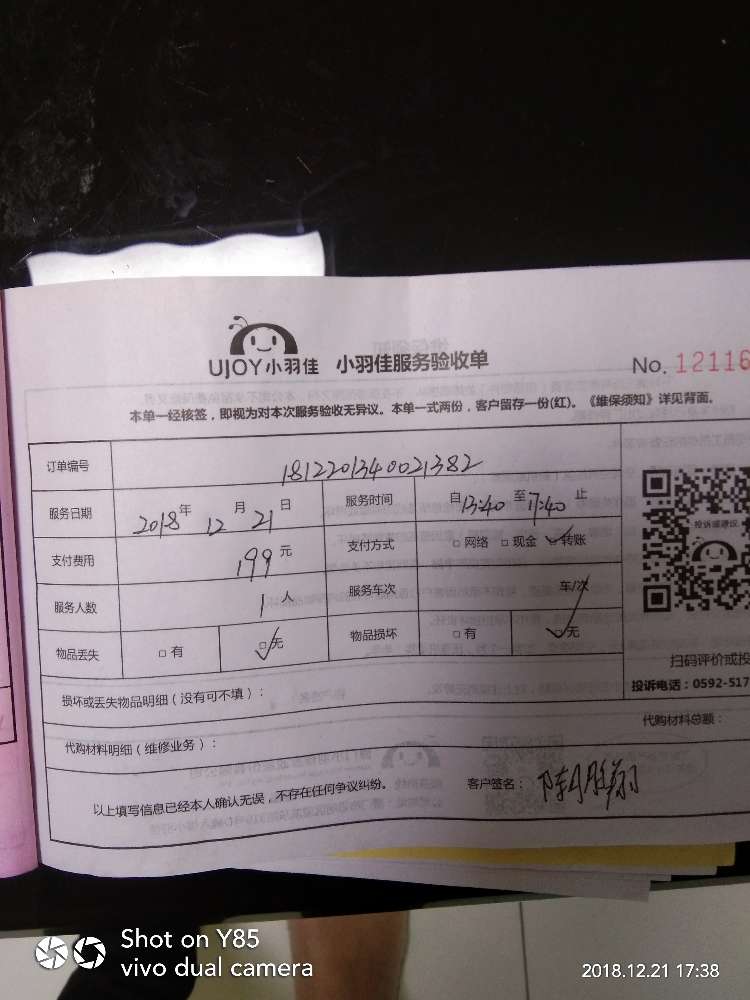 UJOY小羽佳 小羽佳服务验收单 No. 12116
本单一经核签，即视为对本次服务验收无异议。本单一式两份，客户留存一份(红)。《维保须知》详见背面。
订单编号 1812201340021382
服务日期 2018年12月21日 服务时间 自13:40至17:40止
支付费用 199元 支付方式 □网络 □现金 ☑转账
服务人数 1人 服务车次 车/次
物品丢失 □有 ☑无 物品损坏 □有 ☑无
投诉或建议
扫码评价或投
投诉电话：0592-517
损坏或丢失物品明细（没有可不填）：
代购材料明细（维修业务）： 代购材料总额：
以上填写信息已经本人确认无误，不存在任何争议纠纷。 客户签名： 陈胜翔
Shot on Y85
vivo dual camera
2018.12.21 17:38